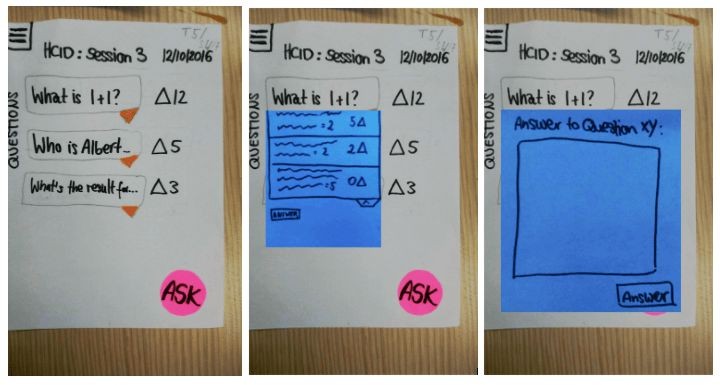 T5/
HCID: Session 3 12/10/2016
QUESTIONS
What is 1+1? △12
Who is Albert... △5
What's the result for... △3
ASK
T5/
HCID: Session 3 12/10/2016
QUESTIONS
What is 1+1? △12
=2 5△
=2 2△
=5 0△
△5
△3
ANSWER
ASK
T5/
HCID: Session 3 12/10/2016
QUESTIONS
What is 1+1? △12
Answer to Question XY:
Answer